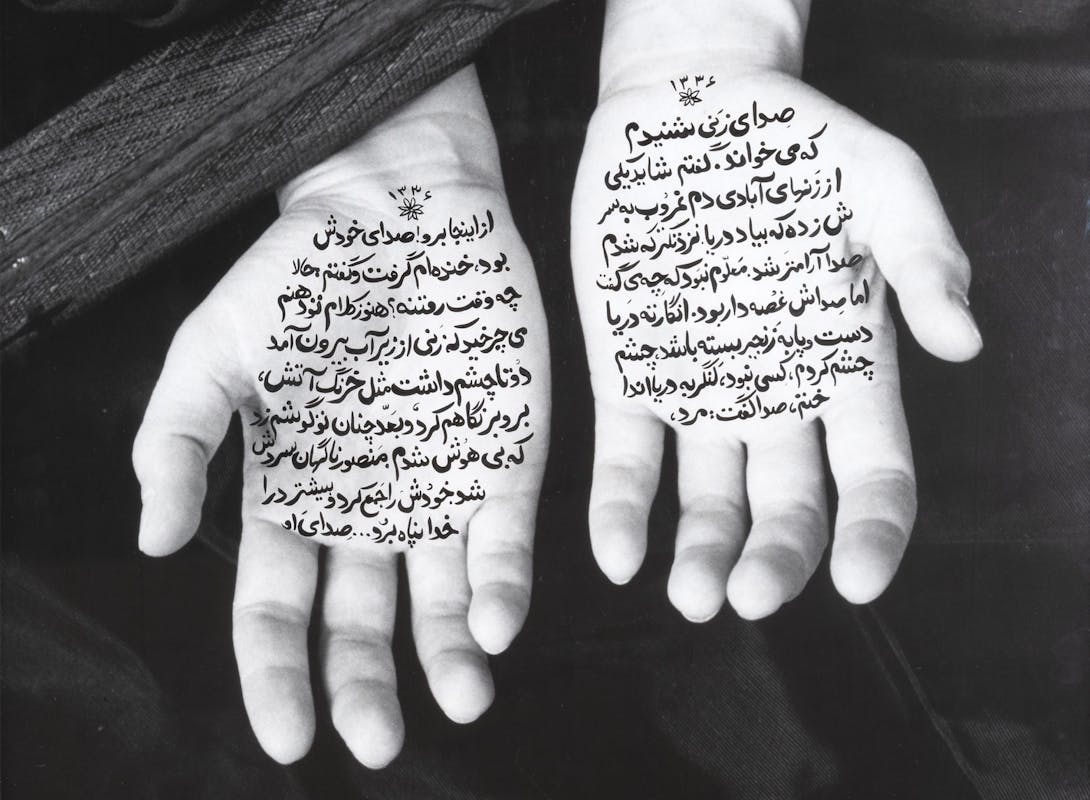 ۱۳۳۶
صدای زنی شنیدم
که می خواند. گفتم شاید یکی
از زنهای آبادی دم غروب به سر
ش زده که بیاد دریا. نزدیکتر که شدم
صدا آرامتر شد. معلوم نبود که چه می گفت
اما صداش غصه دار بود. انگار ته دریا
دست و پا به زنجیر بسته باشد، چشم
چشم کردم، کسی نبود، لنگر به دریا اندا
ختم، صدا گفت: مرد،
۱۳۳۶
از اینجا برو! صدای خودش
بود، خنده ام گرفت و گفتم حالا
چه وقت رفتنه؟ هنوز کلام تو دهنم
می چرخید که زنی از زیر آب بیرون آمد
دو تا چشم داشت مثل خرنگ آتش،
بروبر نگاهم کرد و بعد چنان تو گوشم زد
که بی هوش شدم. منصور ناگهان سردش
شد خودش را جمع کرد و بیشتر در ا
خدا پناه برد... صدای او